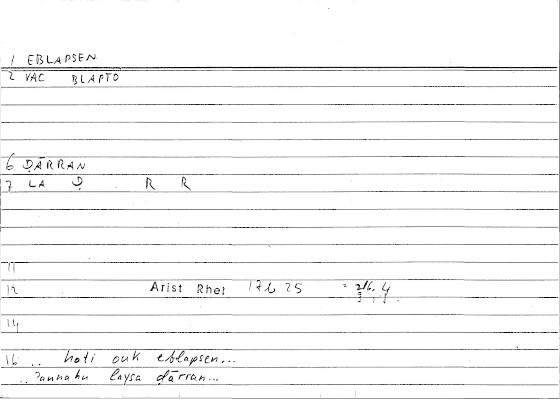 1 EBLAPSEN
2 VAC BLAPTO
6 ḌĀRRAN
7 LA Ḍ R R
11
12 Arist Rhet 17b 25 = 216, 4
14
16 .. hoti ouk eblapsen...
..ʾannahu laysa ḍārran...